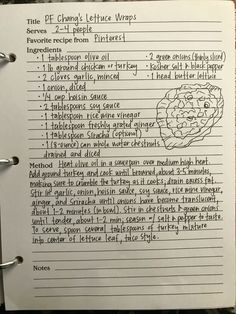 Title PF Chang's Lettuce Wraps
Serves 2-4 people
Favorite recipe from Pinterest
Ingredients
• 1 tablespoon olive oil • 2 green onions (thinly sliced)
• 1 lb ground chicken or turkey • kosher salt & black pepper
• 2 cloves garlic, minced • 1 head butter lettuce
• 1 onion, diced
• 1/4 cup hoisin sauce
• 2 tablespoons soy sauce
• 1 tablespoon rice wine vinegar
• 1 tablespoon freshly grated ginger
• 1 tablespoon Sriracha (optional)
• 1 (8-ounce) can whole water chestnuts,
drained and diced
Method Heat olive oil in a saucepan over medium high heat.
Add ground turkey and cook until browned, about 3-5 minutes,
making sure to crumble the turkey as it cooks; drain excess fat.
Stir in garlic, onion, hoisin sauce, soy sauce, rice wine vinegar,
ginger, and Sriracha until onions have become translucent,
about 1-2 minutes (in bowl). Stir in chestnuts & green onions
until tender, about 1-2 min; season w/ salt & pepper to taste.
To serve, spoon several tablespoons of turkey mixture
into center of lettuce leaf, taco style.
Notes